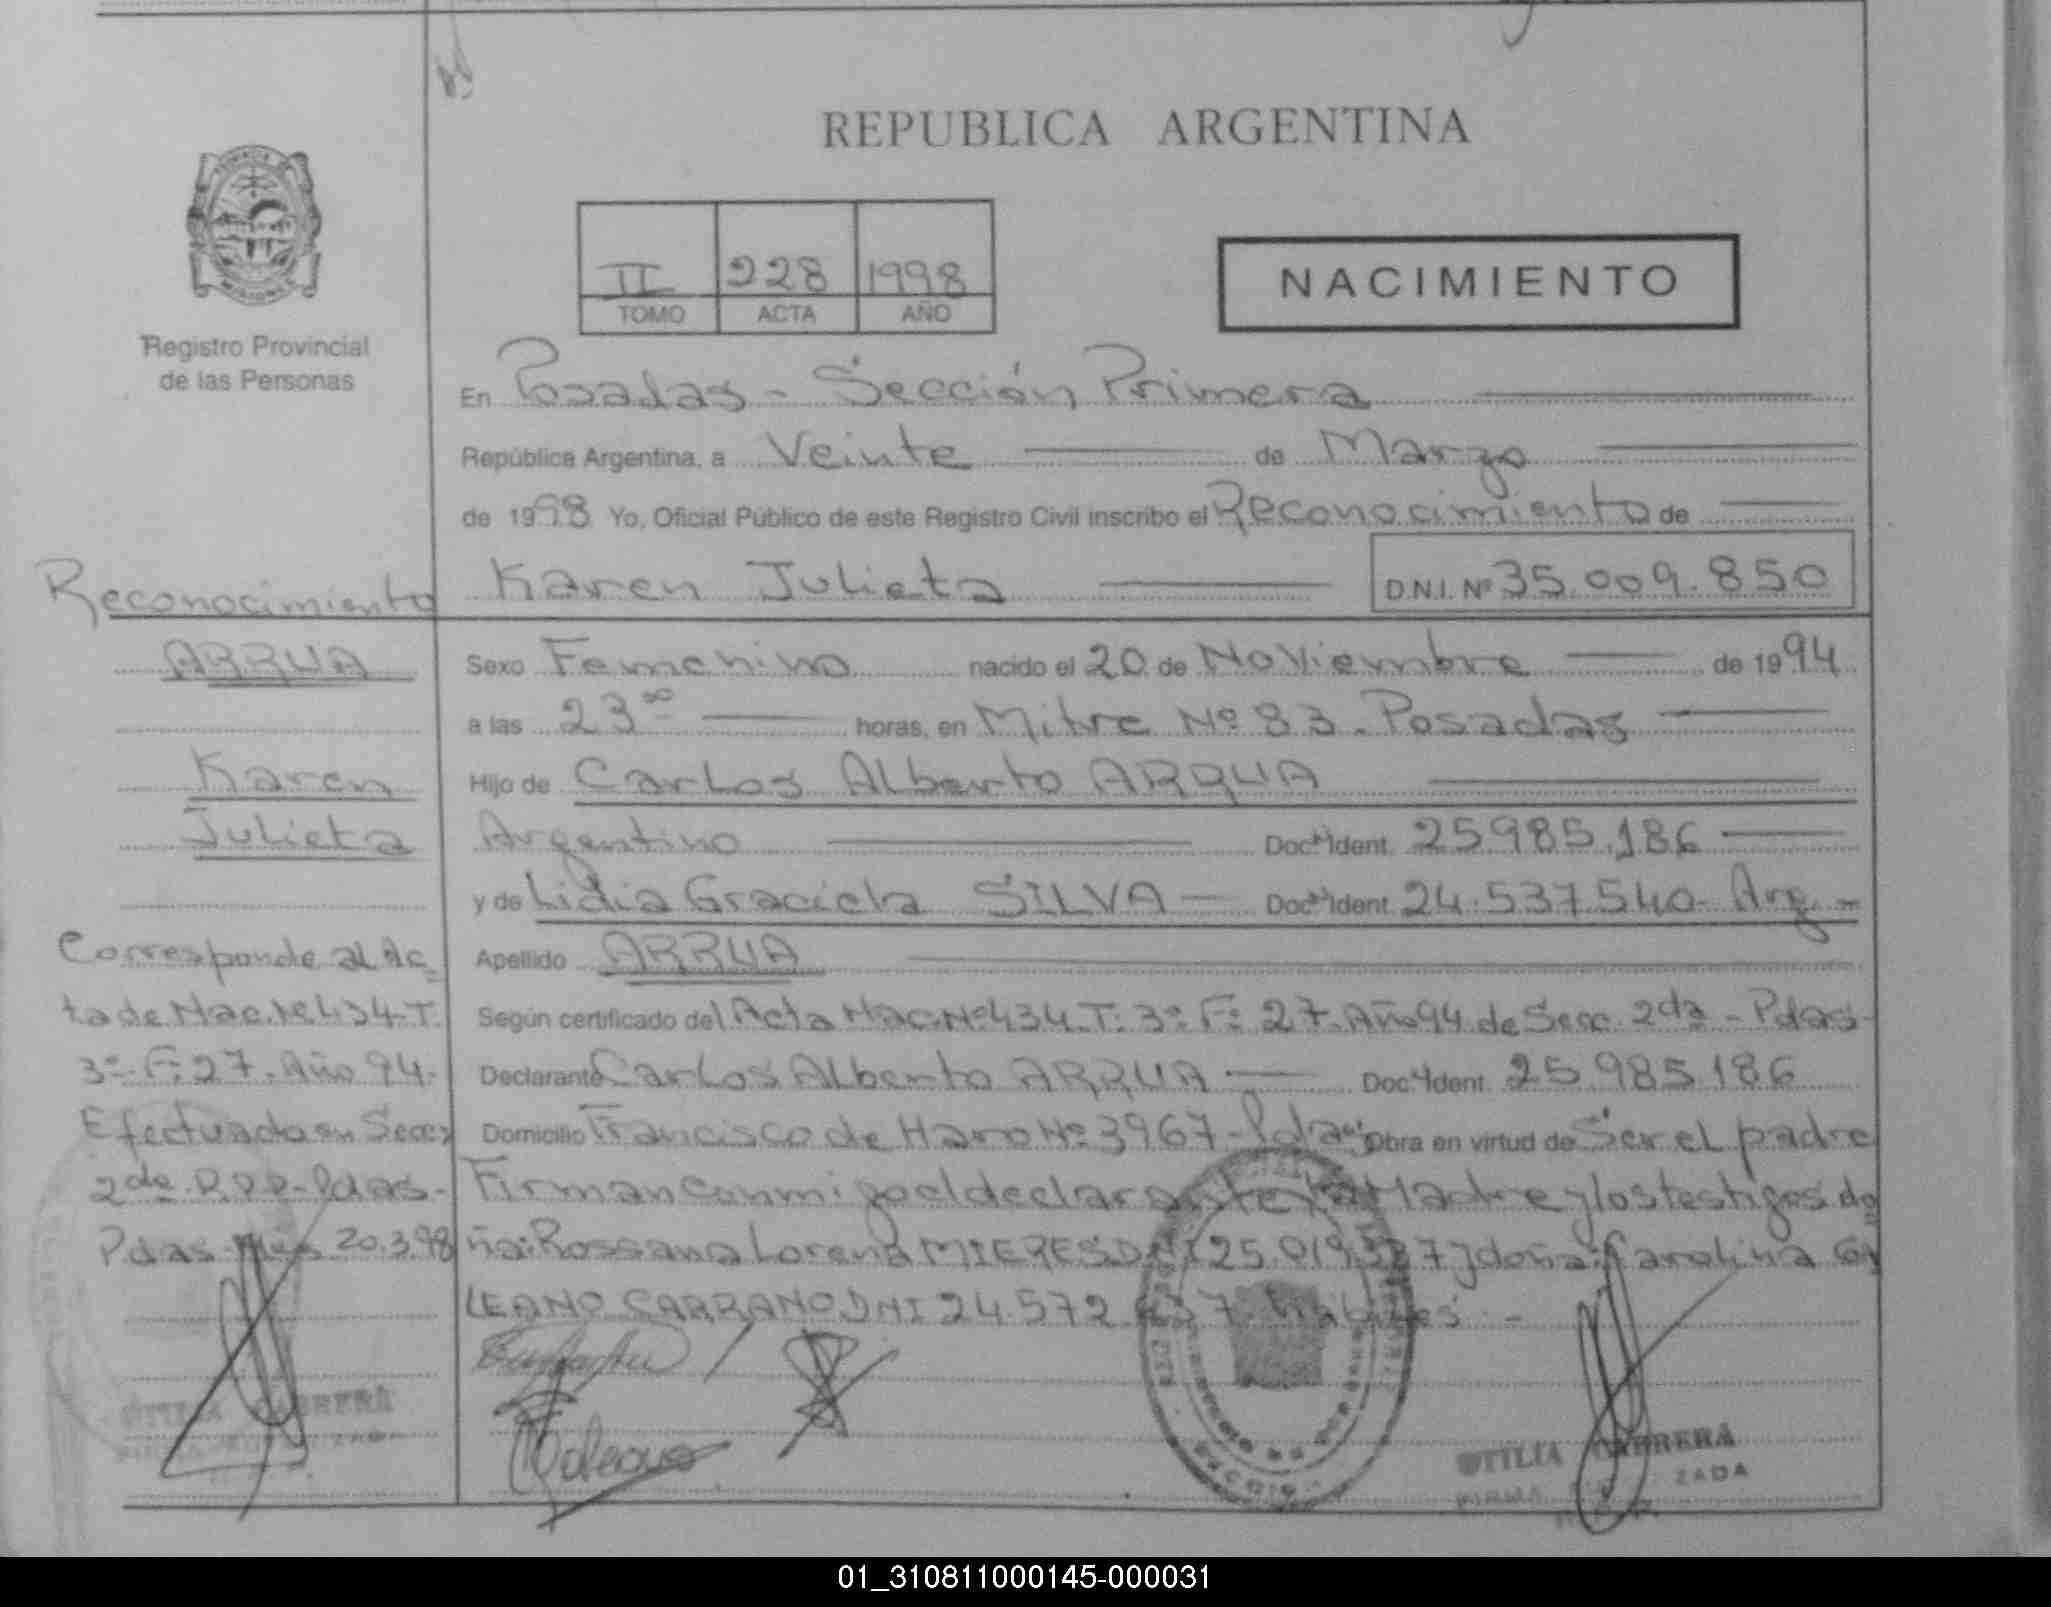 REPUBLICA ARGENTINA
II 228 1998
TOMO ACTA AÑO
NACIMIENTO
Registro Provincial
de las Personas
En Posadas - Sección Primera
República Argentina, a Veinte de Marzo
de 1998 Yo, Oficial Público de este Registro Civil inscribo el Reconocimiento de
Karen Julieta D.N.I. Nº 35.009.850
Reconocimiento
ARRUA
Karen
Julieta
Corresponde al Ac_
ta de Nac. Nº 434-T.
3º-F: 27. Año 94.
Efectuado en Secc.
2da R.P.P-Pdas.-
Pdas 20.3.98
OTILIA CABRERA
Sexo Femenino nacido el 20 de Noviembre de 1994
a las 23ºº horas, en Mitre Nº 83. Posadas
Hijo de Carlos Alberto ARRUA
Argentino Doc. Ident. 25.985.186
y de Lidia Graciela SILVA Doc. Ident. 24.537.540- Arg.-
Apellido ARRUA
Según certificado del Acta Nac. Nº 434.T: 3º F: 27. Año 94 de Secc. 2da - Pdas-
Declarante Carlos Alberto ARRUA Doc. Ident. 25.985.186
Domicilio Francisco de Haro Nº 3967-Pdas. Obra en virtud de Ser el padre
Firman conmigo el declarante la Madre y los testigos do
ña: Rossana Lorena MIERES DNI 25.019. y doña: Carolina
LEANO CARRANO DNI 24.572 hábiles -
OTILIA CABRERA
FIRMA ZADA
01_310811000145-000031